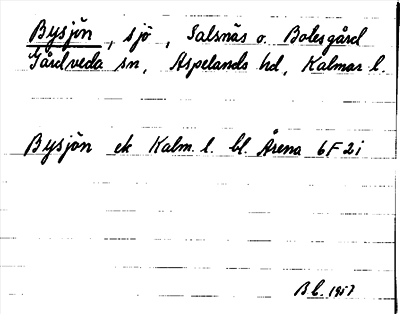 Bysjön, sjö, Salsnäs o. Bolesgård
Gårdveda sn, Aspelands hd, Kalmar l.
Bysjön ek Kalm. l. bl. Årena 6F2i
Bl. 1957